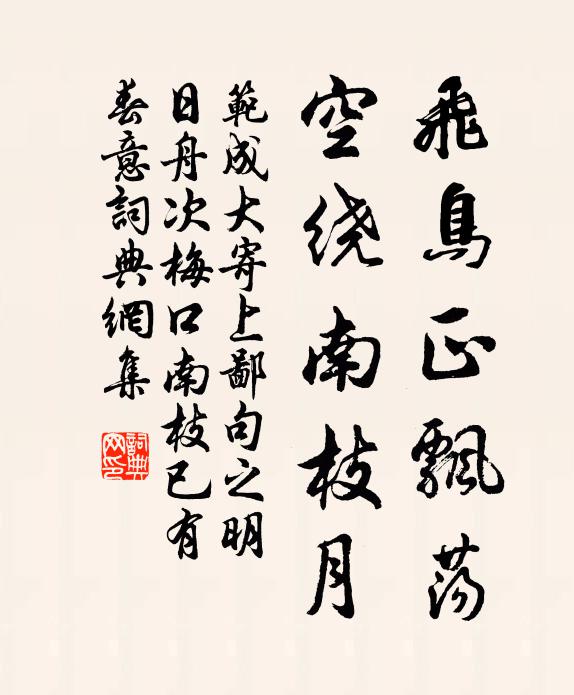 飛鳥正飄蕩
空绕南枝月
範成大寄上鄙句之明
日舟次梅口南枝已有
春意詞典網集
詞典網印